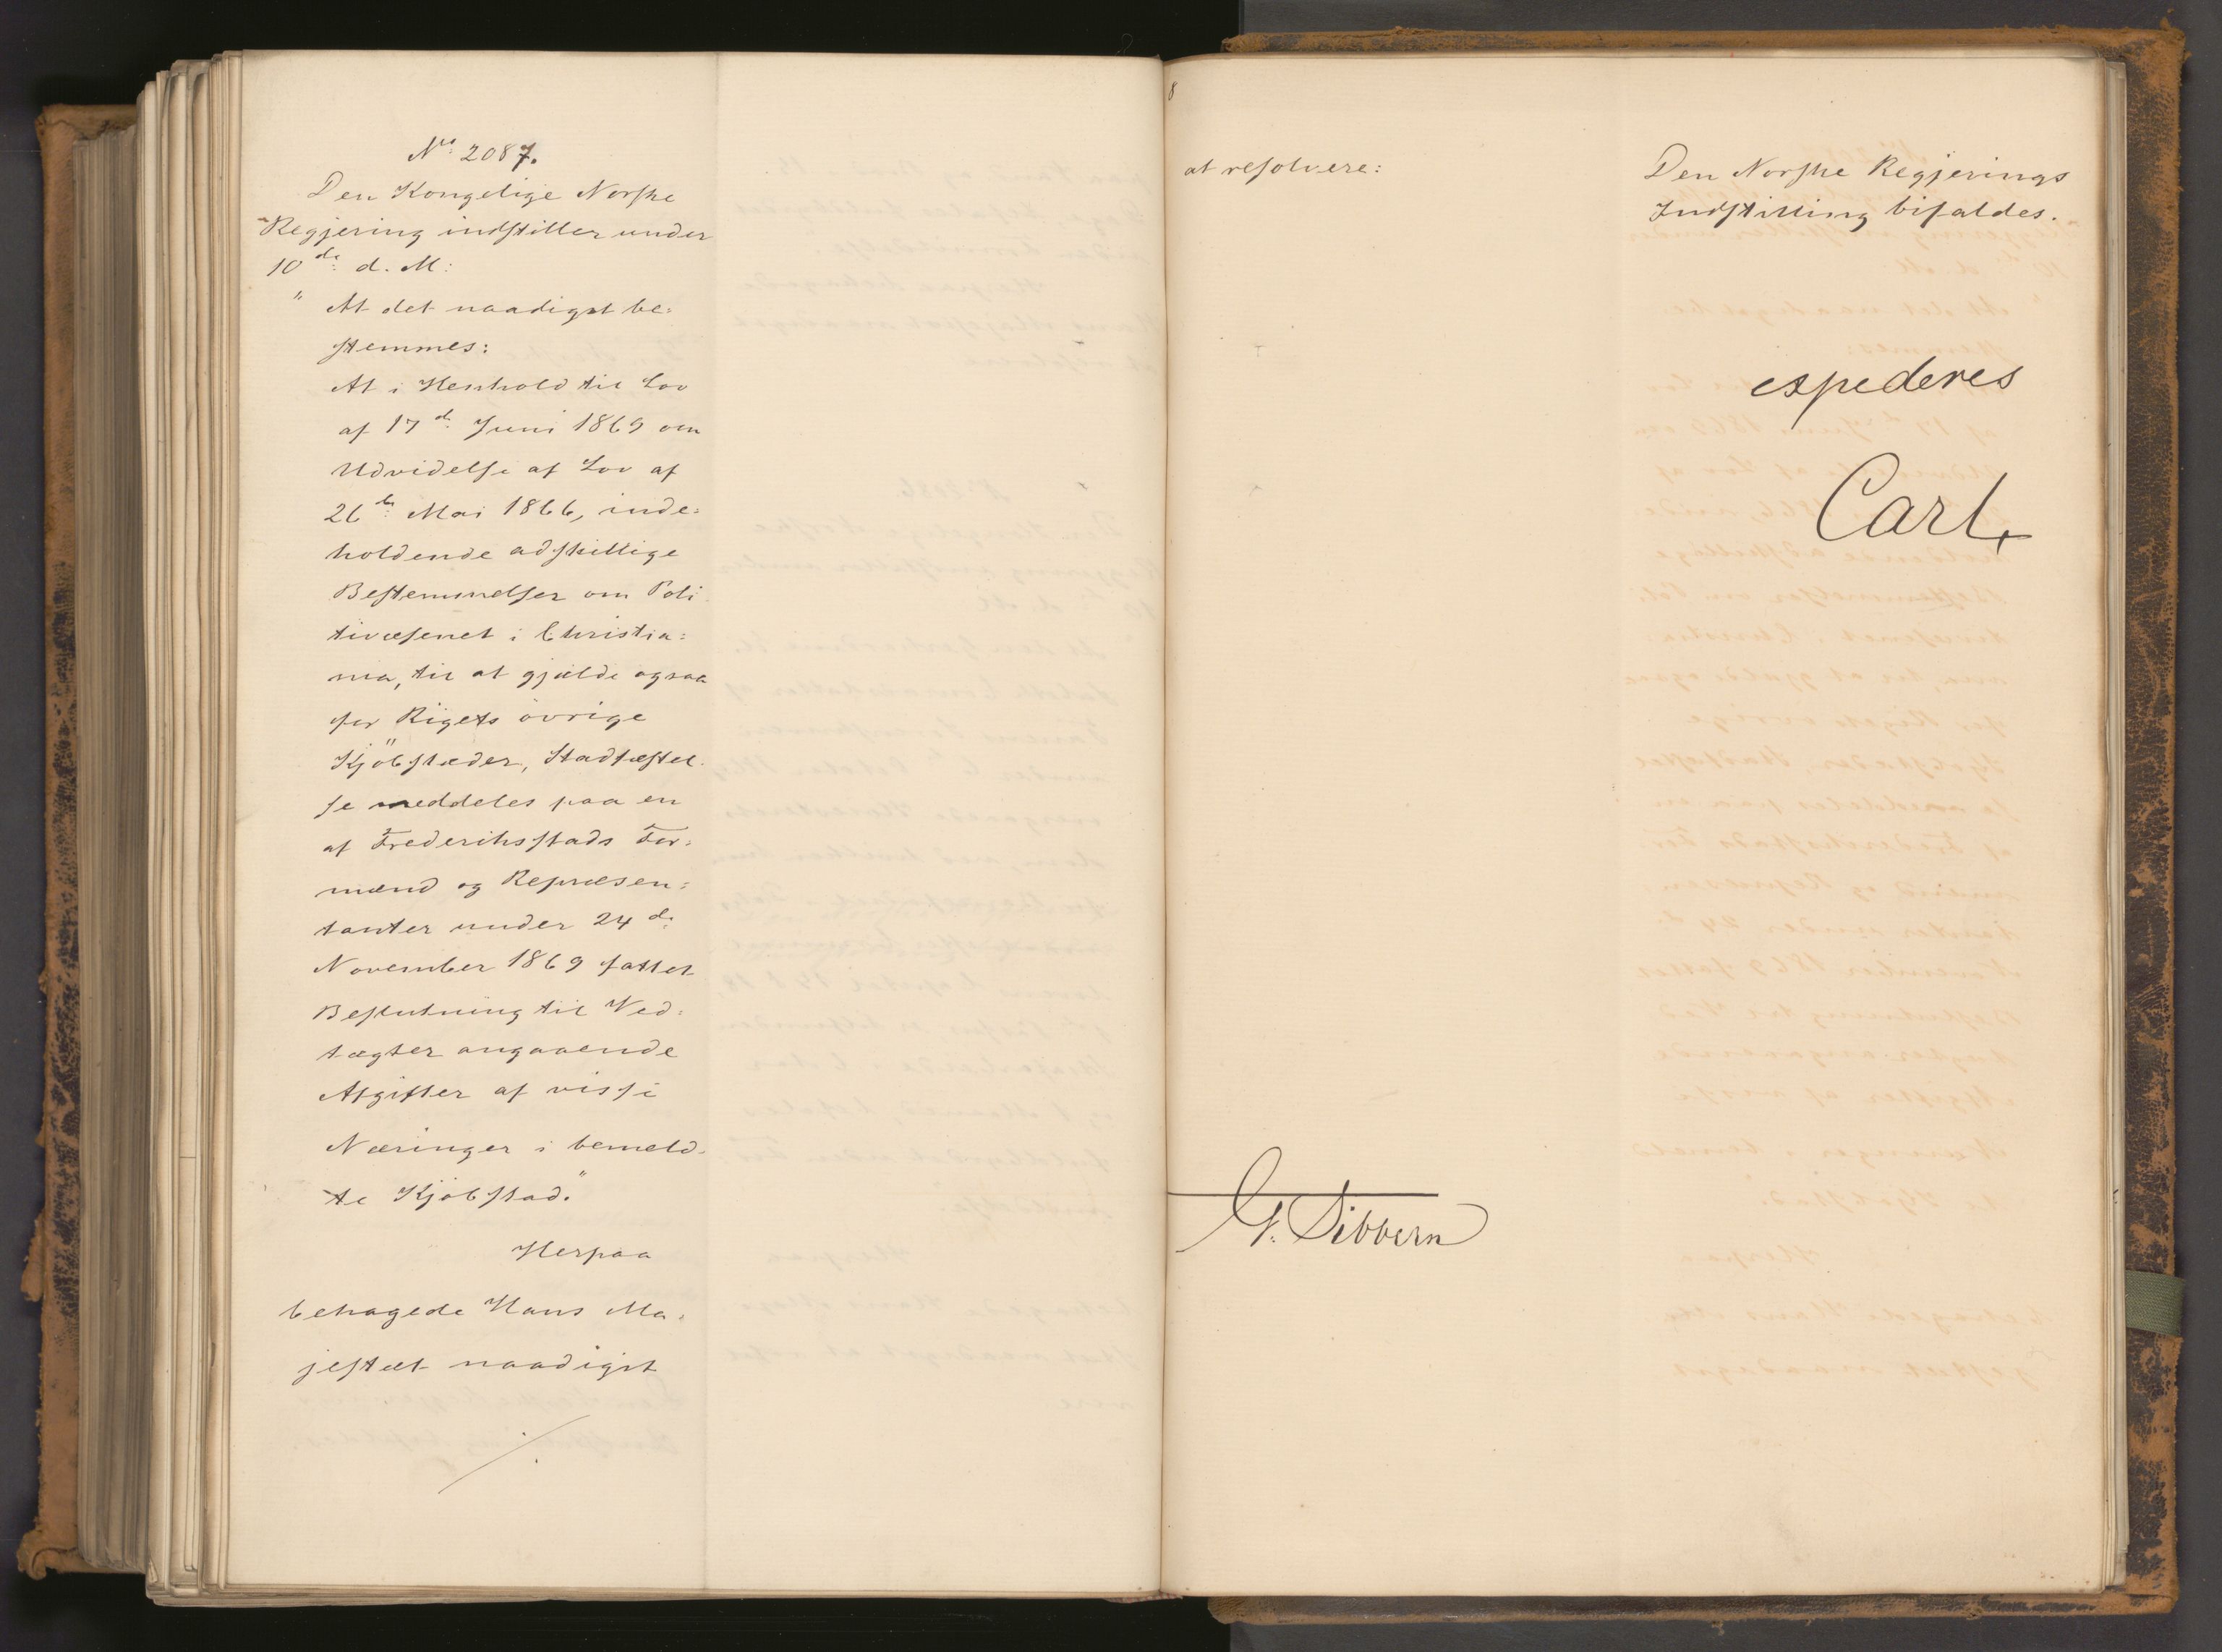 No. 2087.
Den Kongelige Norske
Regjering indstiller under
10de d. M:
" At det naadigst be:
stemmes:
At i Henhold til Lov
af 17de Juni 1869 om
Udvidelse af Lov af
26de Mai 1866, inde:
holdende adskillige
Bestemmelser om Poli
tivæsenet i Christia:
nia, til at gjælde ogsaa
for Rigets övrige
Kjöbstæder, Stadfæstel.
se meddeles paa en
af Frederiksstads For:
mænd og Repræsen:
tanter under 24de
November 1869 fattet
Beslutning til Ved:
tægter angaaende
Afgifter af visse
Næringer i bemeld.
te Kjöbstad."
Herpaa
behagede Hans Ma:
jestæt naadigst
./.
8
at resolvere:
Den Norske Regjerings
Indstilling bifaldes.
expederes
Carl
G. Sibbern